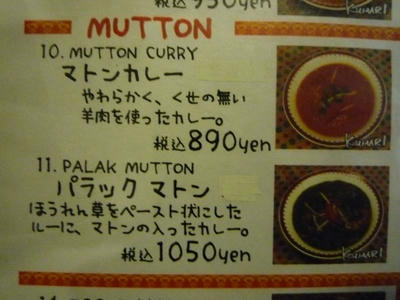 税込 950yen
KUMARI
MUTTON
10. MUTTON CURRY
マトンカレー
やわらかく、くせの無い
羊肉を使ったカレー。
税込 890yen
KUMARI
11. PALAK MUTTON
パラック マトン
ほうれん草をペースト状にした
ルーに、マトンの入ったカレー。
税込 1050yen
KUMARI